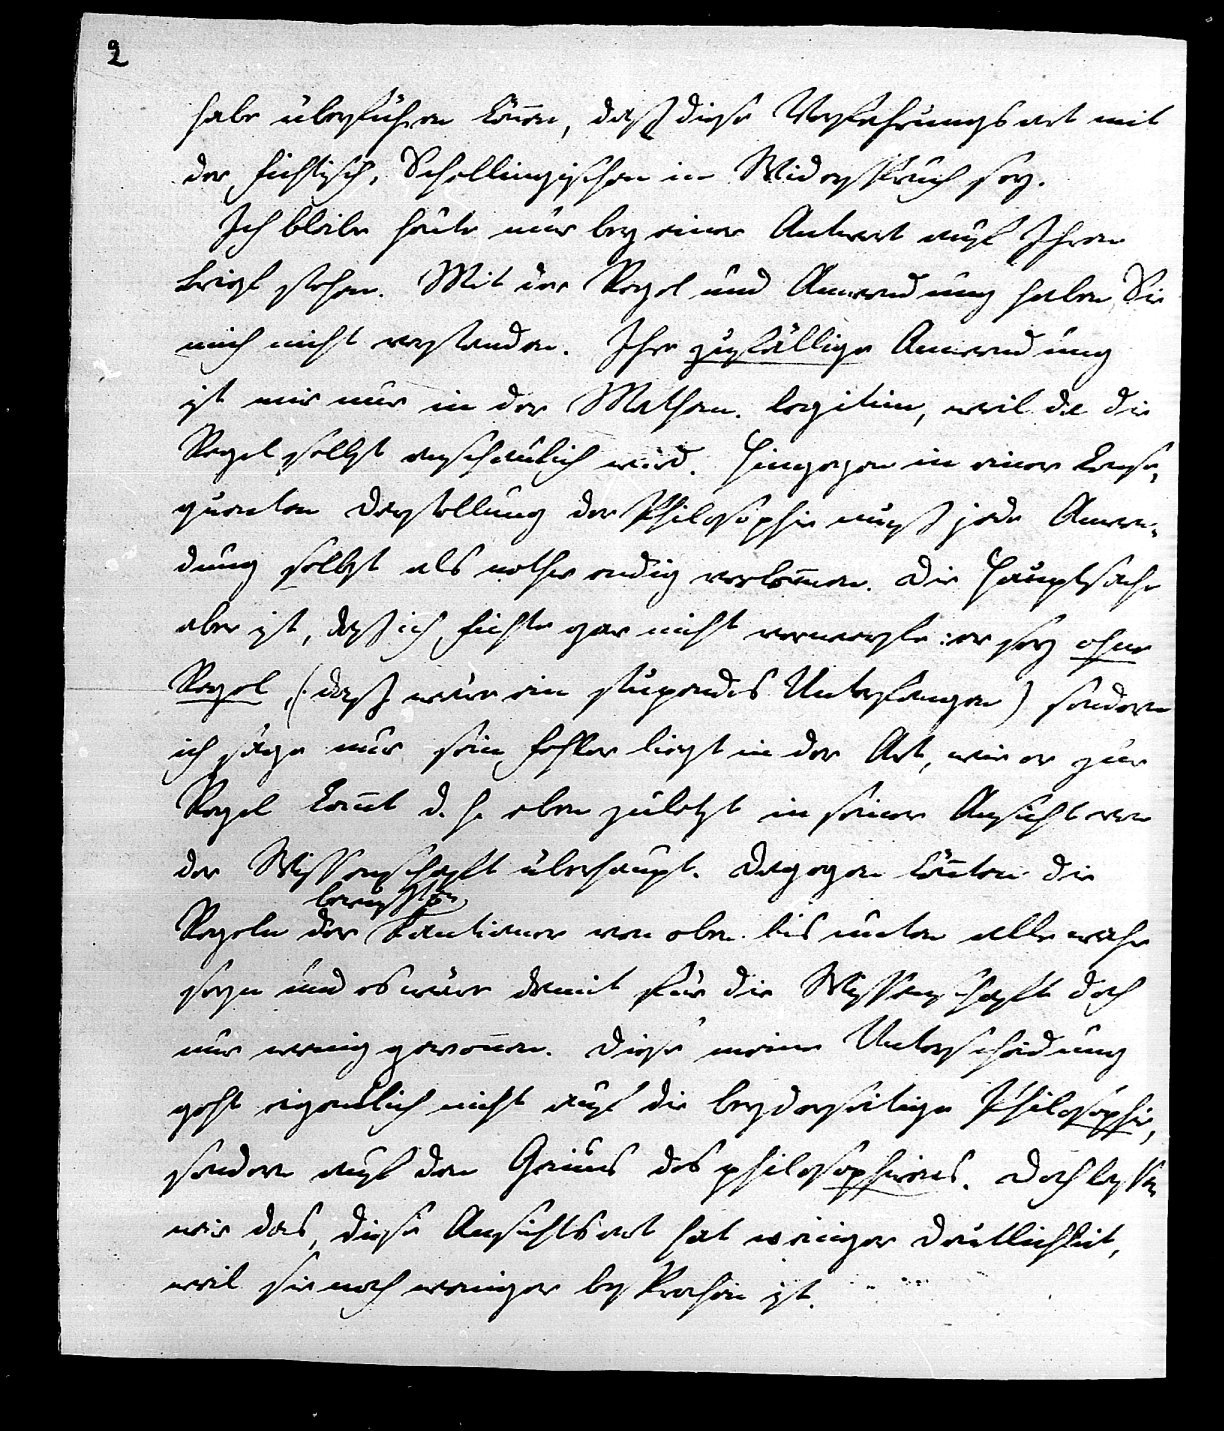 2
habe überführen können, daß diese Verfahrungsart mit
der Fichtisch, Schellingischen in Widerspruch sey.
Ich bleibe heute nur bey einer Antwort auf Ihren
Brief stehen. Mit der Regel und Anwendung haben Sie
mich nicht verstanden. Ihre zufällige Anwendung
ist mir nur in der Mathem. legitim, weil da die
Regel selbst anschaulich wird. Hingegen in einer konse,
quenten Darstellung der Philosophie muß jede Anwen,
dung selbst als nothwendig vorkommen. Die Hauptsache
aber ist, daß ich Fichte gar nicht vorwerfe: er sey ohne
Regel, (: daß wäre ein stupendes Unterfangen) sondern
ich sage nur sein Fehler liegt in der Art, wie er zur
Regel kommt d. h. eben zuletzt in seiner Ansicht von
der Wissenschaft überhaupt. Dagegen könnten die
bewußten
Regeln der Kantianer von oben bis unten alle wahr
seyn und es wäre damit für die Wissenschaft doch
nur wenig gewonnen. Diese meine Unterscheidung
geht eigentlich nicht auf die beyderseitige Philosophie,
sondern auf den Genius des philosophierens. Doch lassen
wir das, diese Ansichtsart hat weniger Deutlichkeit,
weil sie noch weniger besprochen ist.